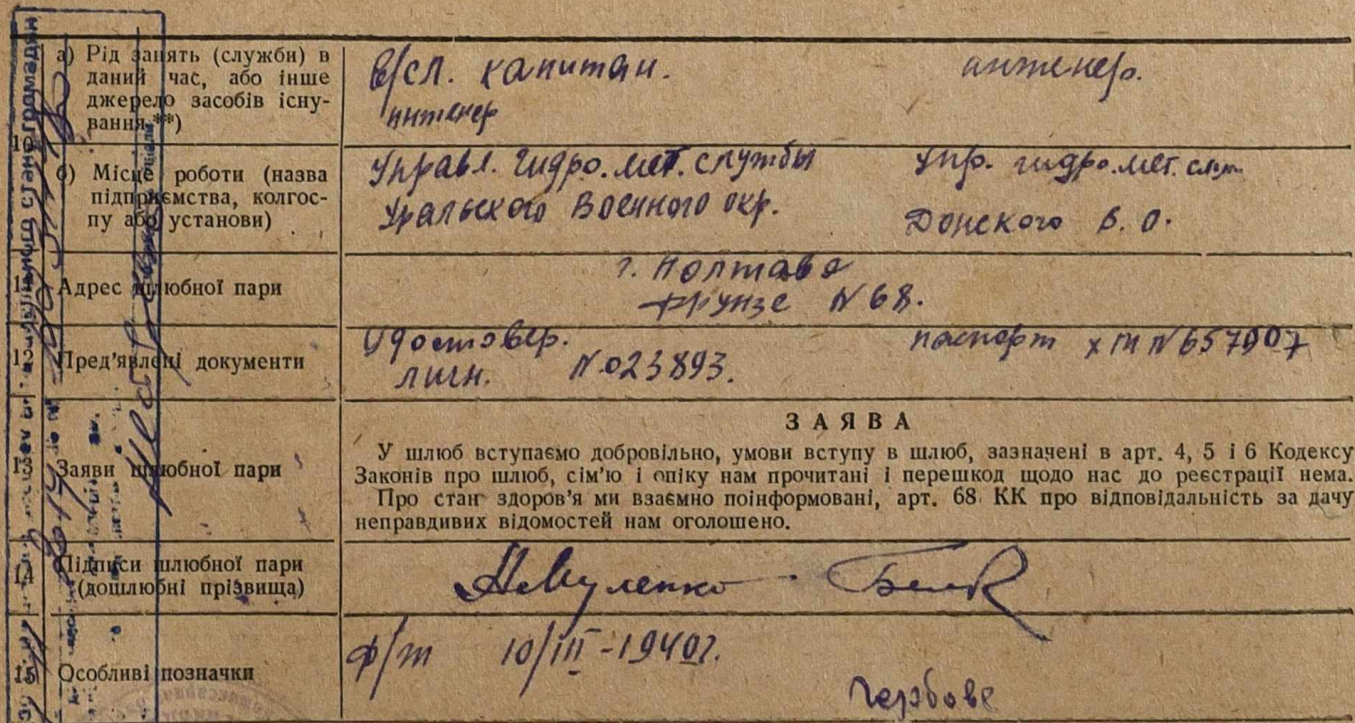 а) Рід занять (служби) в
даний час, або інше
джерело засобів існу-
вання **)
в/сл. капитан. инженер.
инженер
б) Місце роботи (назва
підприємства, колгос-
пу або установи)
Управл. гидро.мет. службы Упр. гидро.мет. служ.
Уральского Военного окр. Донского В. О.
11 Адрес шлюбної пари
г. Полтава
Фрунзе №68.
12 Пред'явлені документи
Удостовер. паспорт №657907
личн. №023893.
13 Заяви шлюбної пари
ЗАЯВА
У шлюб вступаємо добровільно, умови вступу в шлюб, зазначені в арт. 4, 5 і 6 Кодексу
Законів про шлюб, сім'ю і опіку нам прочитані і перешкод щодо нас до реєстрації нема.
Про стан здоров'я ми взаємно поінформовані, арт. 68 КК про відповідальність за дачу
неправдивих відомостей нам оголошено.
14 Підписи шлюбної пари
(дошлюбні прізвища)
15 Особливі позначки
ф/т 10/III-1940г.
гербове
стану громадян